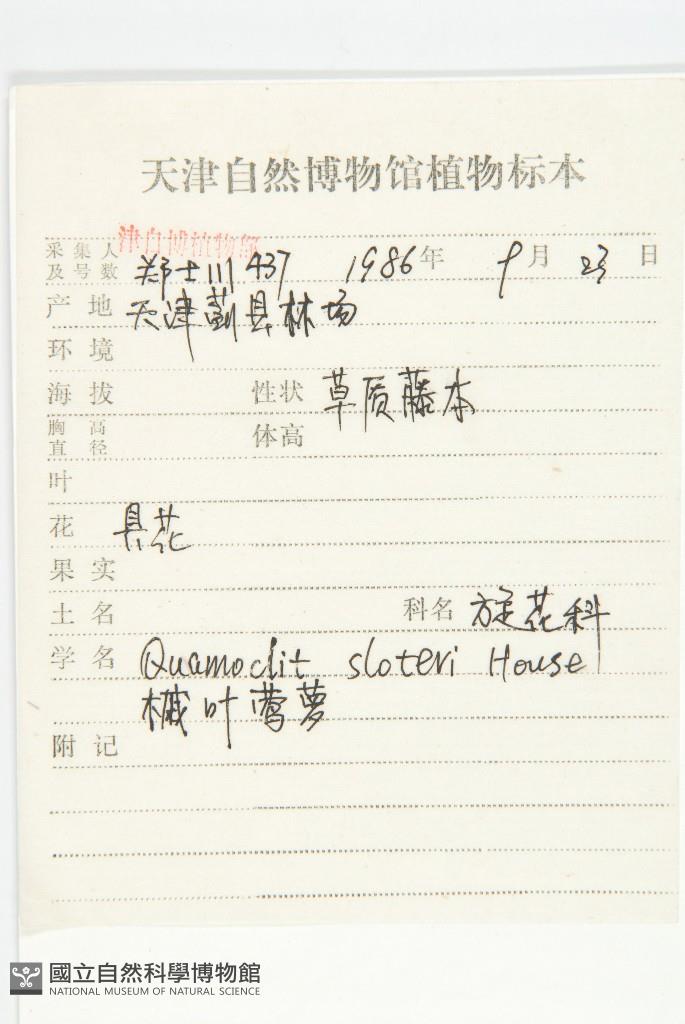 天津自然博物馆植物标本
津自博植物部
采集人及号数 郑士川 437 1986年 9月 23日
产地 天津蓟县林场
环境
海拔 性状 草质藤本
胸高直径 体高
叶
花 具花
果实
土名 科名 旋花科
学名 Quamoclit sloteri House
槭叶茑萝
附记
國立自然科學博物館
NATIONAL MUSEUM OF NATURAL SCIENCE